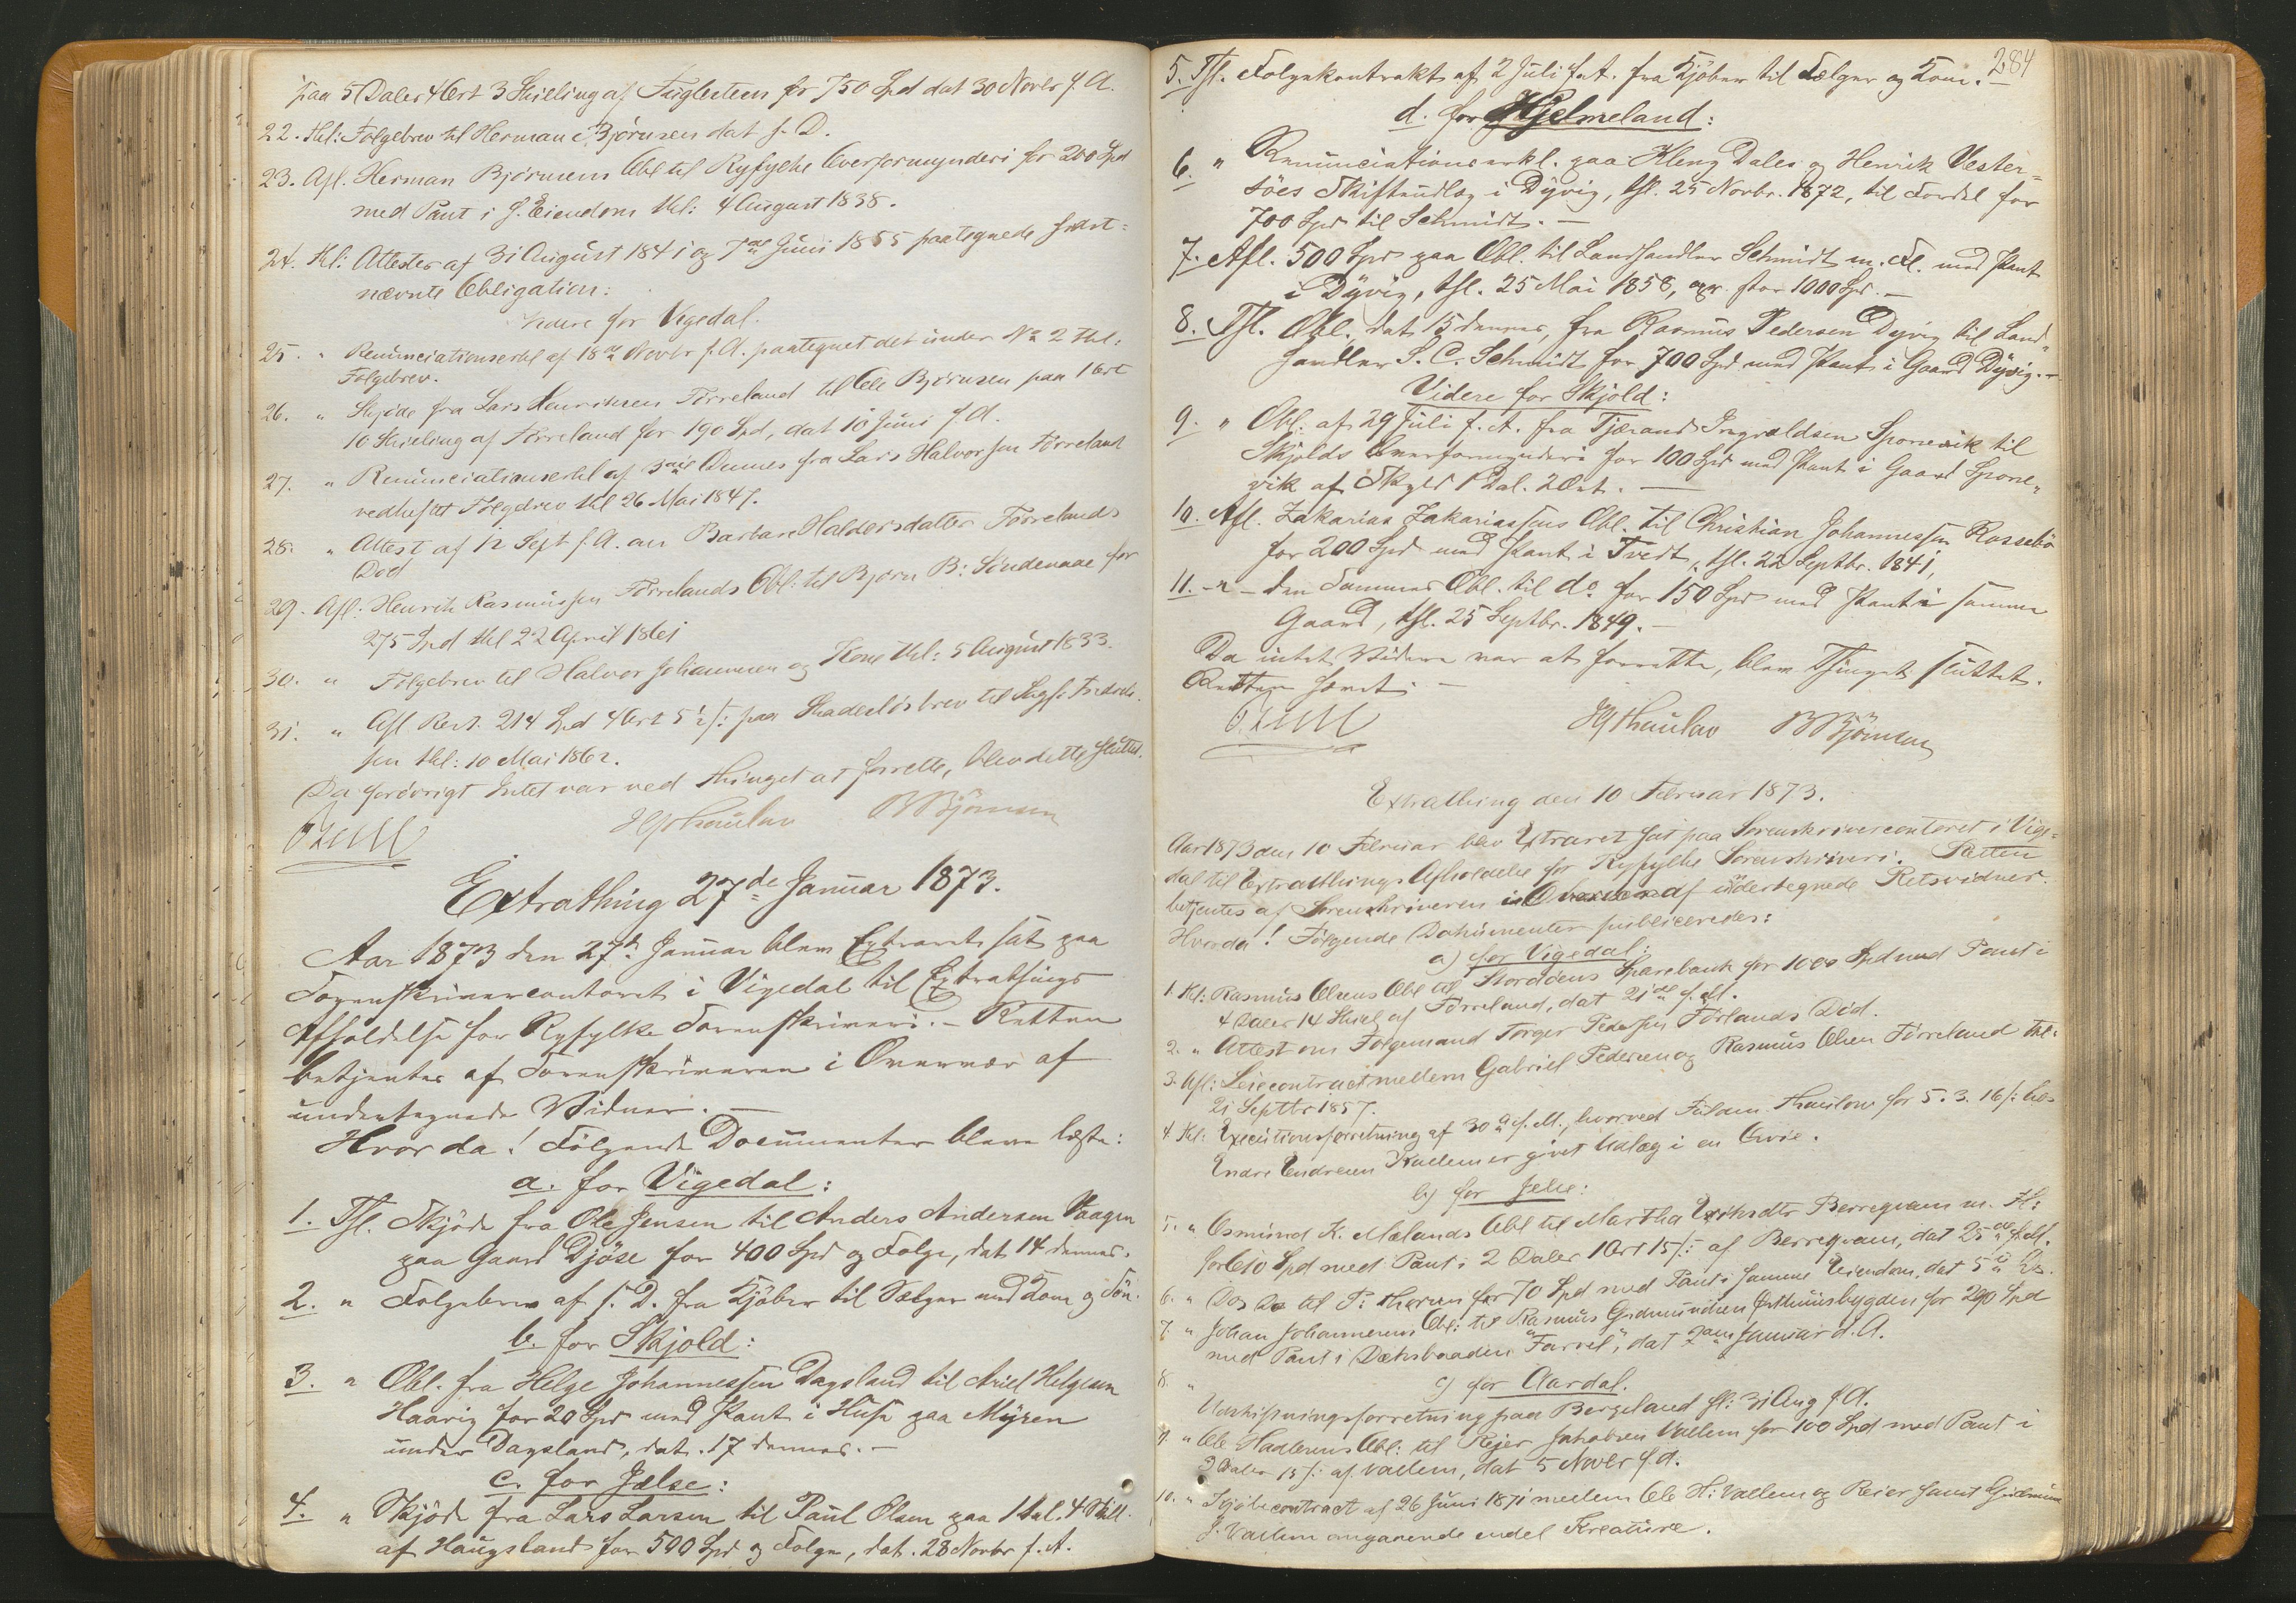 paa 5 Daler 4 Ort 3 Skilling af Fuglesteen for 750 Spd dat 30 Novbr f. A.
22. Thl: Følgebrev til Herman Bjørnsen dat s. D.
23. Afl. Herman Bjørnsens Obl til Ryfylke Overformynderi for 200 Spd
med Pant i s. Eiendom thl: 4 August 1838.
24. Thl: Attester af 31 August 1841 og 7de Juni 1855 paategnede sidst=
nævnte Obligation:
videre for Vigedal.
25. " Renunciationserkl af 18de Novbr f. A. paategnet det under No 2 thl:
Følgebrev.
26. " Skjøde fra Lars Henriksen Førreland til Ole Bjørnsen paa 1 Ort
10 Skilling af Førreland for 190 Spd, dat 10 Juni f. A.
27. " Renunciationserkl af 3die Dennes fra Lars Halvorsen Førreland
vedheftet Følgebrev thl 26 Mai 1847.
28. " Attest af 12 Sept f. A. om Barbara Haldorsdatter Førrelands
Død
29. Afl: Henrik Rasmussen Førrelands Obl: til Bjørn B: Søndenaae for
275 Spd thl 22 April 1861
30. " Følgebrev til Halvor Johannesen og Kone thl: 5 August 1833.
31. " Afl Rest. 214 Spd 4 Ort 5½ s: paa Skadesløsbrev til
sen thl: 10 Mai 1862.
Da forøvrigt Intet var ved Thinget at forrette, blev dette sluttet.
HThaulow BBjørnsen
Extrathing 27de Januar 1873.
Aar 1873 den 27de Januar blev Extraret sat paa
Sorenskrivercontoret i Vigedal til Extrathings
Afholdelse for Ryfylke Sorenskriveri. - Retten
betjentes af Sorenskriveren i Overvær af
undertegnede Vidner. -
Hvor da! Følgende Documenter bleve læste:
a. for Vigedal:
1. Thl. Skjøde fra Ole Jensen til Anders Andersen Vaagen
paa Gaard Djøse for 400 Spd og Følge, dat 14 dennes.
2. " Følgebrev af s. D. fra Kjøber til Sælger med Kone og Søn.
b. for Skjold:
3. " Obl. fra Helge Johannessen Dagsland til Ariel Helgesen
Haavig for 20 Spd med Pant i Huse paa Myren
under Dagsland, dat. 17 dennes. -
c. for Jælse:
4. " Skjøde fra Lars Larsen til Paul Olsen paa 1 Dal. 4 Skill.
af Haugsland for 500 Spd og Følge, dat. 28 Novbr f. A.
284
5. Thl. Følgekontrakt af 2 Juli f. A. fra Kjøber til Sælger og Kone. -
d. for Hjelmeland:
6. " Renunciationserkl. paa Kleng Dales og Henrik Vester=
søes Skifteudlæg i Dyvig, thl. 25 Novbr. 1872, til Fordel for
700 Spd til Schmidt. -
7. Afl. 500 Spd paa Obl. til Landhandler Schmidt m. Fl. med Pant
i Dyvig, thl. 25 Mai 1858, opr. stor 1000 Spd. -
8. Thl. Obl., dat 15 dennes, fra Rasmus Pedersen Dyvig til Land=
handler S. C. Schmidt for 700 Spd med Pant i Gaard Dyvig. -
Videre for Skjold:
9. " Obl. af 29 Juli f. A. fra Tjerand Ingvaldsen Sponevik til
Skjolds Overformynderi for 100 Spd med Pant i Gaard Spone=
vik af Skyld 1 Dal. 2 Ort. -
10. Afl. Zakarias Zakariassens Obl. til Christian Johannessen Rossebø
for 200 Spd med Pant i Tvedt, thl. 22 Septbr. 1841,
11. - " - den Sammes Obl. til do for 150 Spd med Pant i samme
Gaard, thl. 25 Septbr. 1849. -
Da intet Videre var at forrette, blev Thinget sluttet.
Retten hævet. -
HThaulow BBjørnsen
Extrathing den 10 Februar 1873.
Aar 1873 den 10 Februar blev Extraret sat paa Sorenskrivercontoret i Vige=
dal til Extrathings Afholdelse for Ryfylke Sorenskriveri. Retten
betjentes af Sorenskriveren i Overvær af undertegnede Retsvidner.
Hvorda! Følgende Dokumenter publiceredes:
a) for Vigedal:
1. Thl: Rasmus Olsens Obl til Stordøens Sparebank for 1000 Spd med Pant i
4 Daler 14 Skill af Førreland, dat 21de f. M.
2. " Attest om Følgemand Torger Pedersen Førlands Død.
3. Afl: Leiecontract mellem Gabriel Pedersen og Rasmus Olsen Førreland thl:
21 Septbr 1857.
4. Thl: Executionsforretning af 30de f. M., hvorved Thaulow for 5. 3. 16 s: hos
Endre Endresen Kallem er givet Udlæg i en Qvie.
b) for Jelse:
5. " Osmund K. Mælands Obl til Martha Eriksdtr Berreqvam m. Fl:
for 610 Spd med Pant i 2 Daler 1 Ort 15 s: af Berreqvam, dat 25de f. M.
6. " Dos Do til P: Thorsen for 70 Spd med Pant i samme Eiendom, dat 5te ds.
7. " Johan Johannesens Obl: til Rasmus Gudmundsen Østhuusbygden for 290 Spd
med Pant i Dæksbaaden "Farvel", dat 2den Januar d. A.
c) for Aardal.
8. " Udskiftningsforretning paa Bergeland sl: 31 Aug f. A.
9. " Ole Hadlesens Obl: til Reier Jakobsen Vallem for 100 Spd med Pant i
2 Daler 15 s: af Vallem, dat 5 Novbr f. A.
10. " Kjøbecontract af 26 Juni 1871 mellem Ole H: Vallem og Reier samt Gudmund
J. Vallem angaaende endel Kreature.